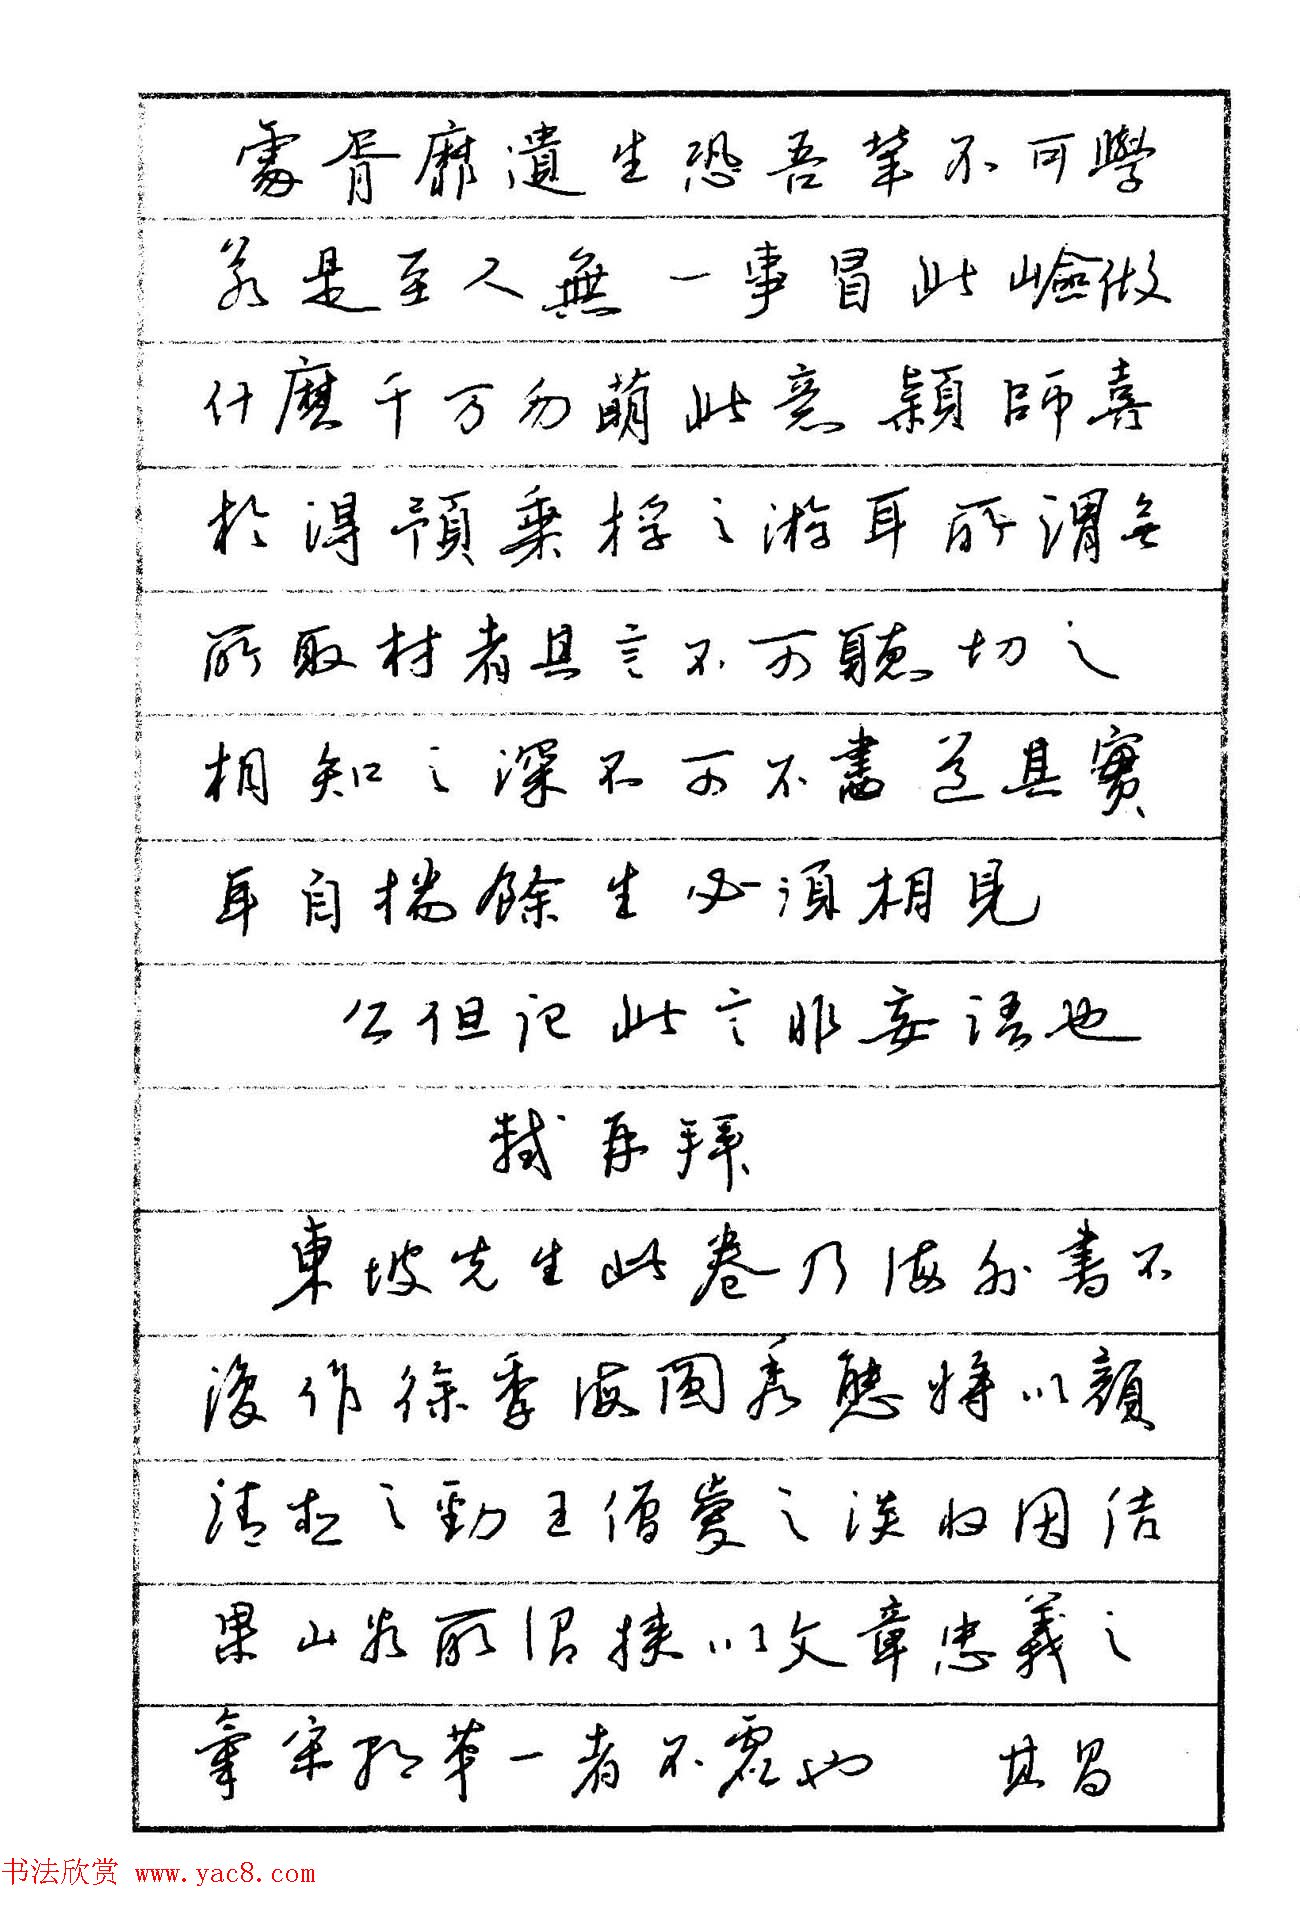 處胥靡遺生恐吾輩不可學
若是至人無一事冒此嶮做
什麽千万勿萌此意穎師喜
於得預乗桴之游耳所謂無
所取材者其言不可聽切之
相知之深不可不盡道其實
耳自揣餘生必須相見
公但記此言非妄語也
軾再拜
東坡先生此卷乃海外書不
復作徐季海圓秀態將以顔
清臣之勁王僧虔之淡收因结
果山谷所謂挟以文章忠義之
氣宋朝第一者不虛也 其昌
书法欣赏 www.yac8.com